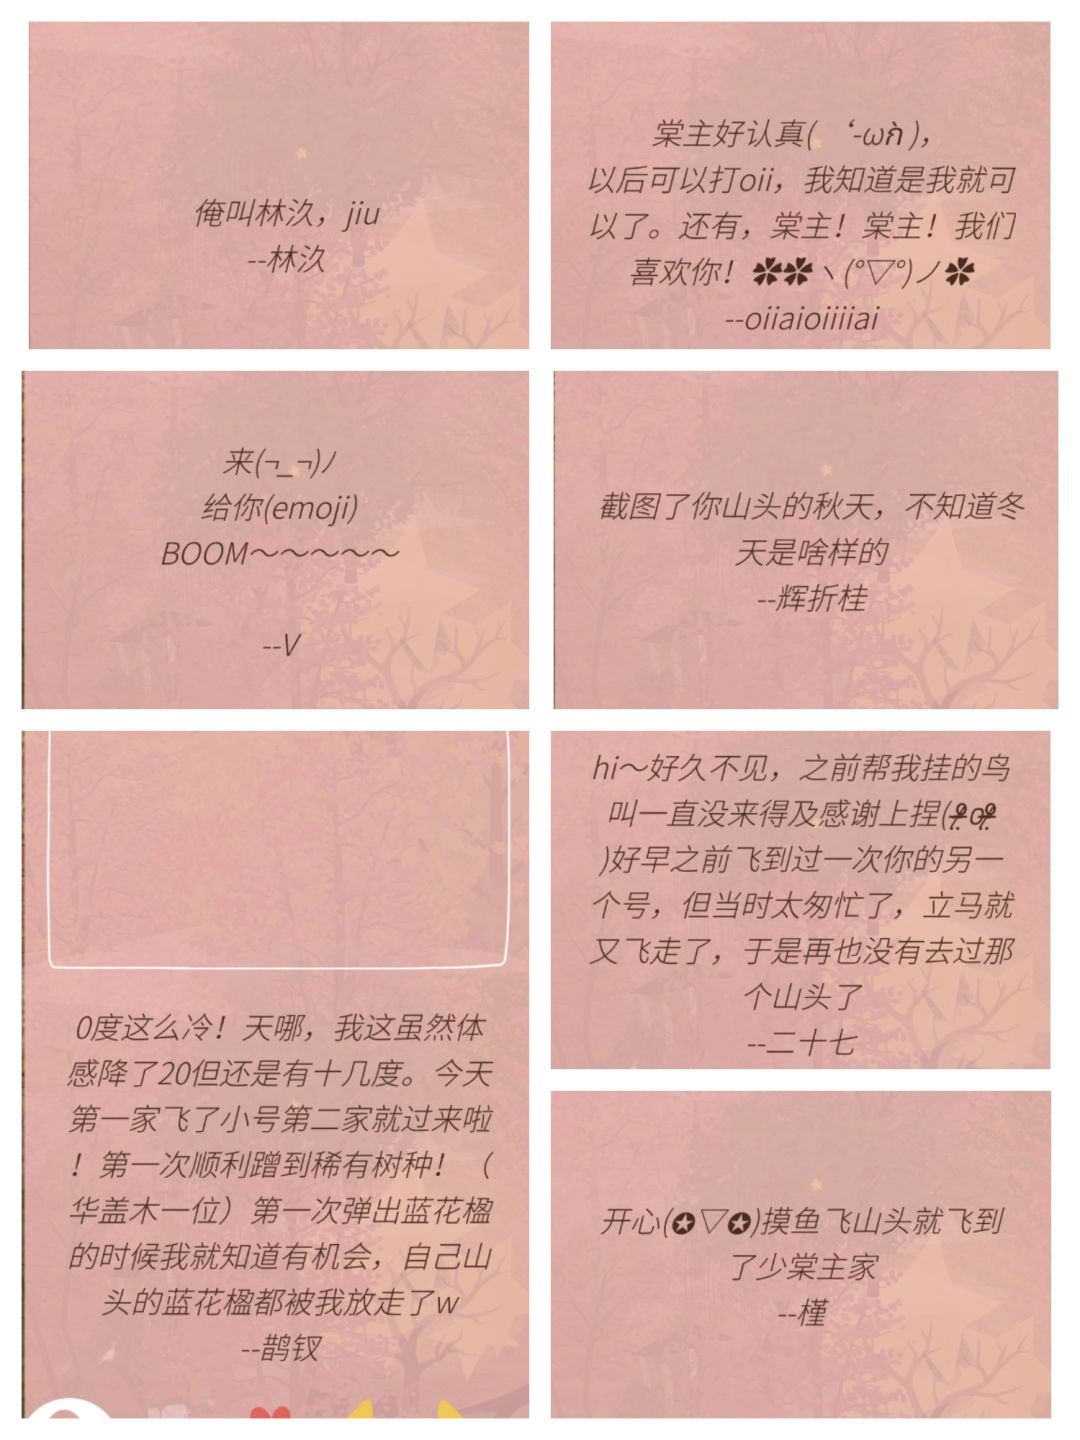 俺叫林汣，jiu
--林汣
棠主好认真( ‘-ωก̀ )，
以后可以打oii，我知道是我就可
以了。还有，棠主！棠主！我们
喜欢你！✿✿ヽ(°▽°)ノ✿
--oiiaioiiiiai
来(¬_¬)ﾉ
给你(emoji)
BOOM～～～～～
--V
截图了你山头的秋天，不知道冬
天是啥样的
--辉折桂
0度这么冷！天哪，我这虽然体
感降了20但还是有十几度。今天
第一家飞了小号第二家就过来啦
！第一次顺利蹭到稀有树种！（
华盖木一位）第一次弹出蓝花楹
的时候我就知道有机会，自己山
头的蓝花楹都被我放走了w
--鹊钗
hi～好久不见，之前帮我挂的鸟
叫一直没来得及感谢上捏(
)好早之前飞到过一次你的另一
个号，但当时太匆忙了，立马就
又飞走了，于是再也没有去过那
个山头了
--二十七
开心(✪▽✪)摸鱼飞山头就飞到
了少棠主家
--槿